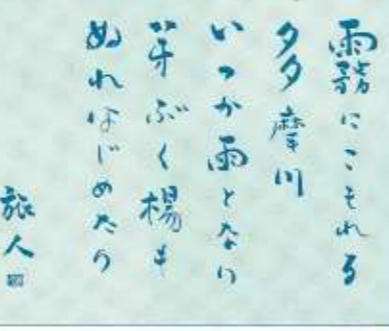 霧にこもれる
多摩川
いつか雨となり
芽ぶく楊も
ぬれはじめたり
旅人